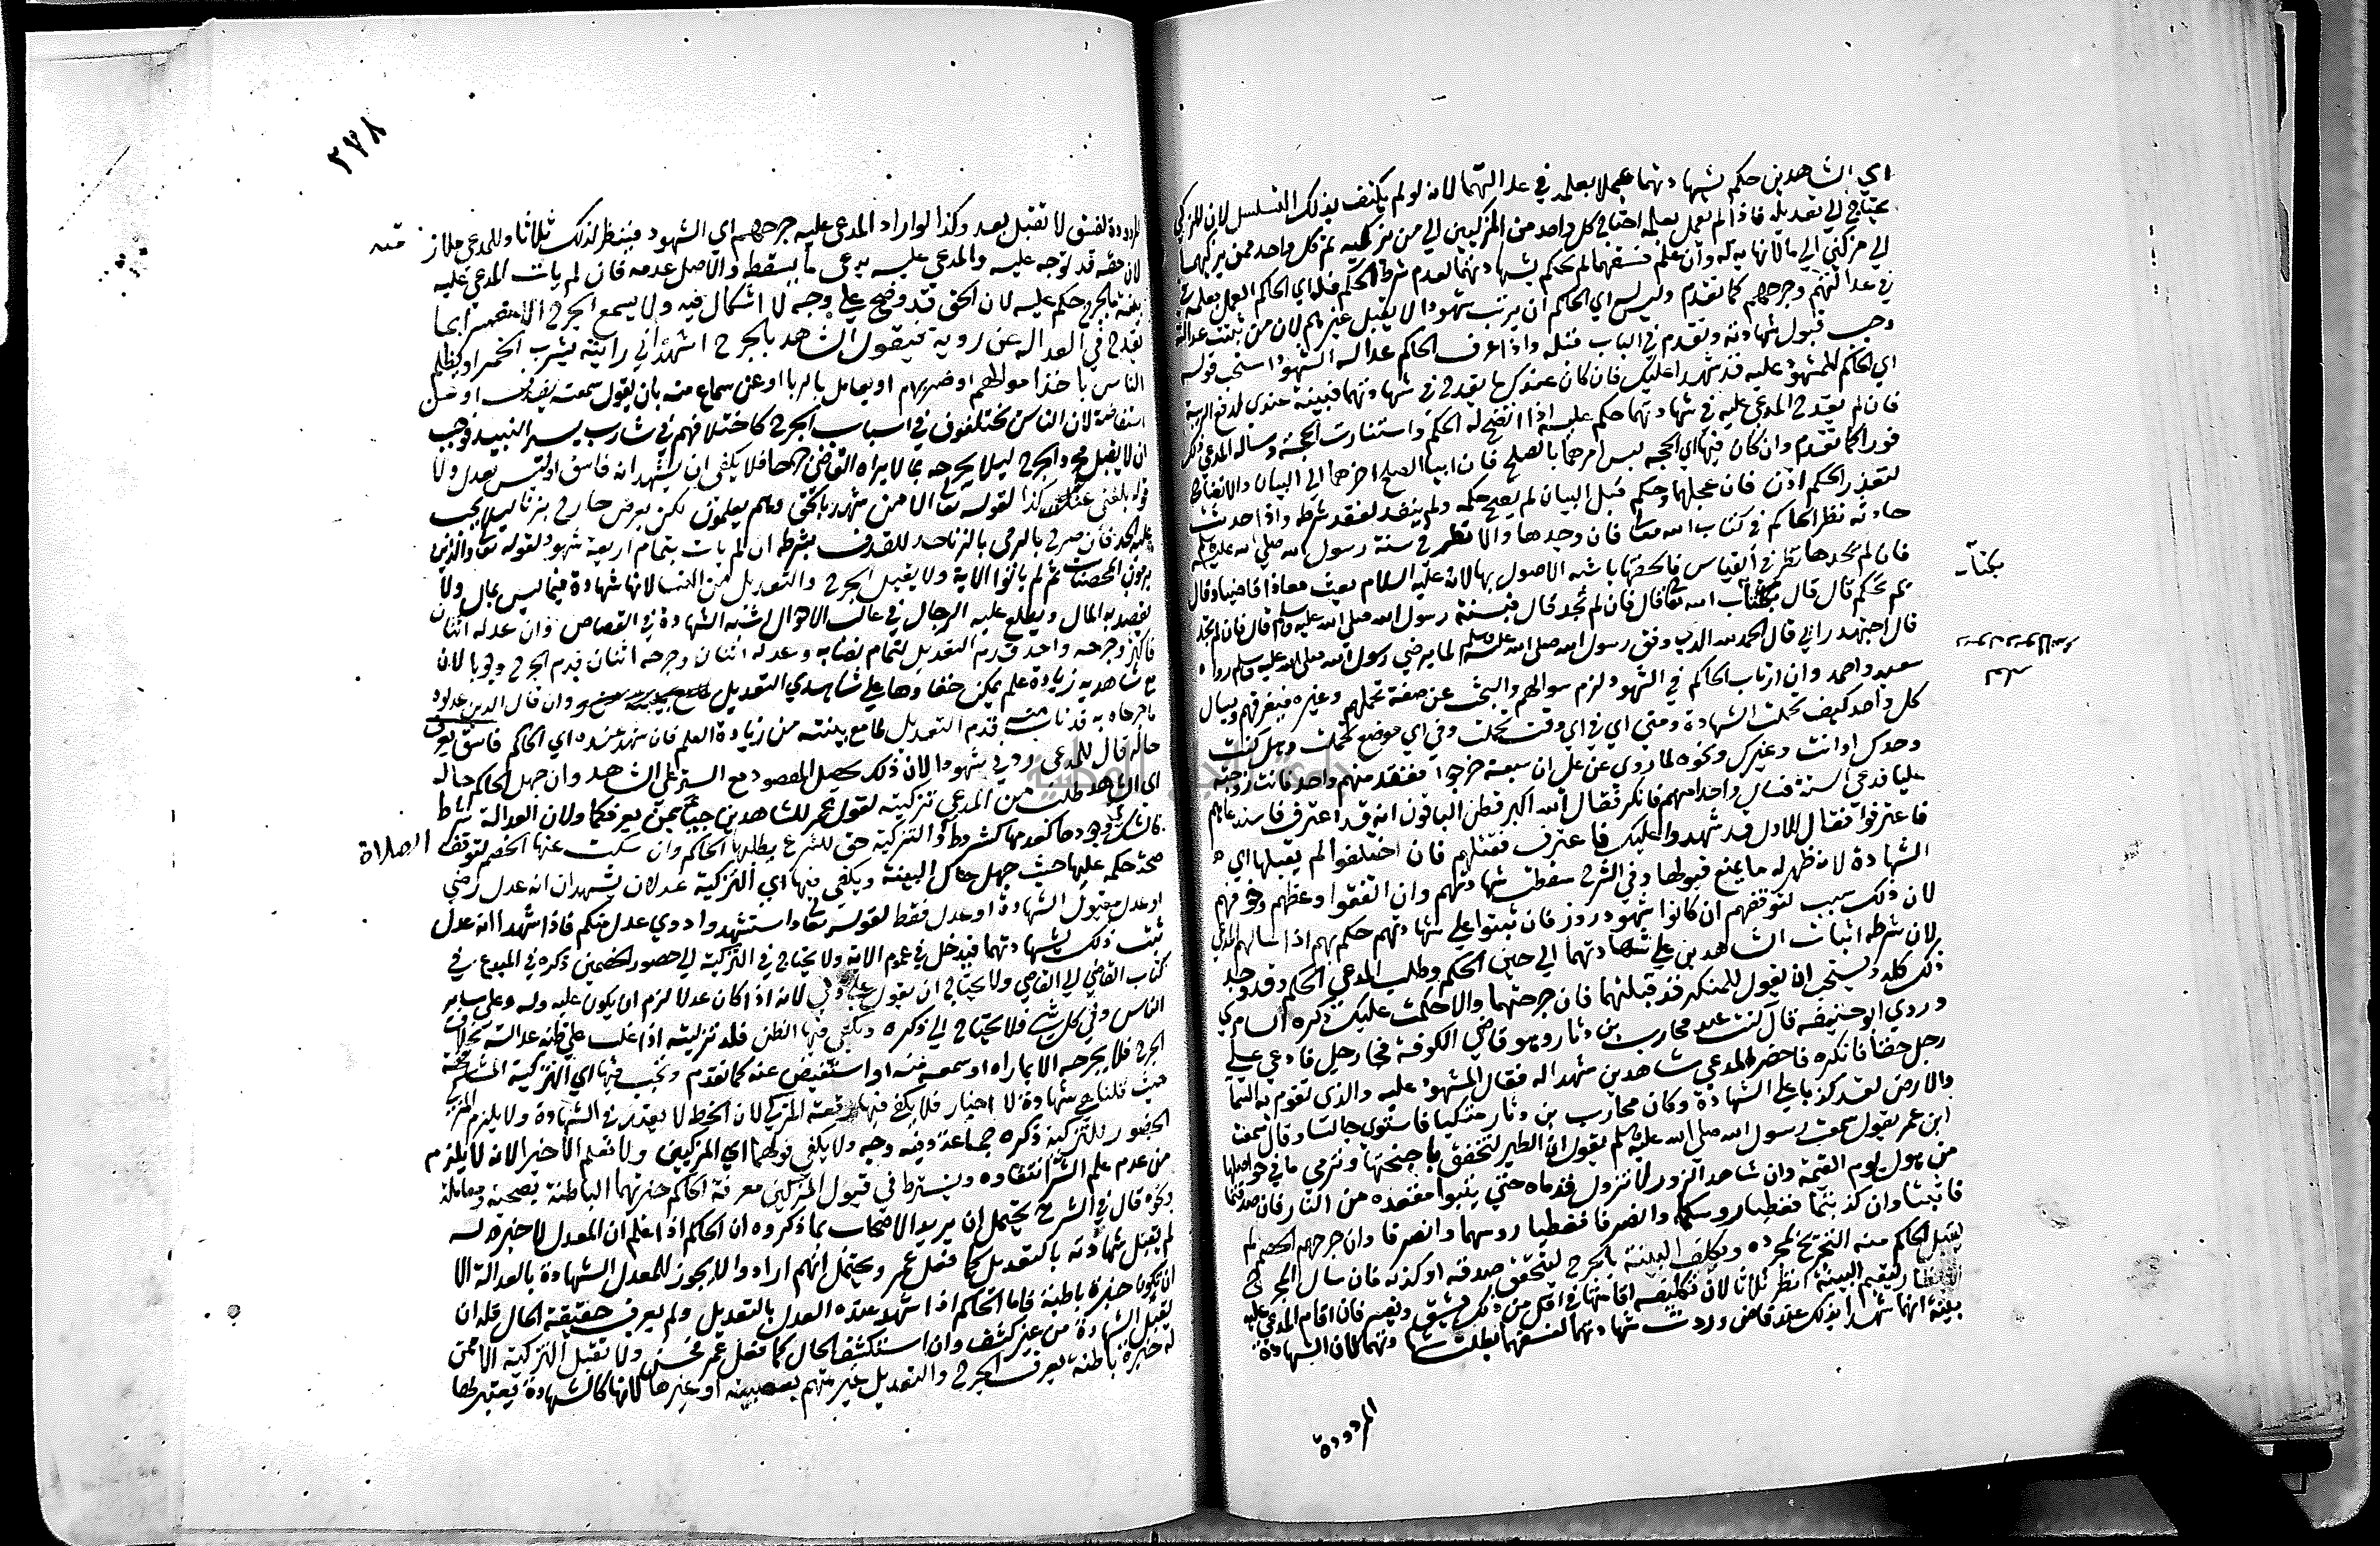 اي الشاهدين حكم بشهادتهما عملا بعلمه في عدالتهما لانه لو لم يكتف بذلك التسلسل لان المزكي
يحتاج الي تعديله فاذا لم يعمل بعلمه احتاج كل واحد من المزكيين الي من يزكيه ثم كل واحد ممن يزكيهما
الي مزكيي الي ما لا نهاية له وان علم فسقهما لم يحكم بشهادتهما لعدم شرط الحكم فله اي الحاكم العمل بعلمه
في عدالتهم وجرحهم كما تقدم وليس اي الحاكم ان يرتب شهودا لا يقبل غيرهم لان من ثبتت عدالته
وجب قبول شهادته وتقدم في الباب قبله واذا عرف الحاكم عدالة الشهود استحب قوله
اي الحاكم للمشهود عليه قد شهدا عليك فان كان عندك ما يقدح في شهادتهما فبينه عندي لدفع الريبة
فان لم يقدح المدعي عليه في شهادتهما حكم عليه اذا اتضح له الحكم واستنارت الحجة وساله المدعي ذلك
فورا كما تقدم وان كان فيها اي الحجة لبس امرهما بالصلح فان ابيا الصلح اخرهما الي البيان والاتضاح
لتعذر الحكم اذن فان عجلها وحكم قبل البيان لم يصح حكمه ولم ينفذ لفقد شرطه واذا حدثت
حادثة نظر الحاكم في كتاب الله تعالى فان وجدها والا نظر في سنة رسول الله صلى الله عليه وسلم
فان لم يجدها نظر في القياس فالحقها باشبه الاصول بها لانه عليه السلام بعث معاذا قاضيا وقال
بم تحكم قال قال بكتاب الله تعالى قال فان لم تجد قال فبسنة رسول الله صلى الله عليه وسلم قال فان لم تجد
بكتاب
قال اجتهد رايي قال الحمد لله الذي وفق رسول رسول الله صلى الله عليه وسلم لما يرضي رسول الله صلى الله عليه وسلم رواه
سعيد واحمد وان ارتاب الحاكم في الشهود لزم سوالهم والبحث عن صفة تحملهم وغيره فيفرقهم ويسال
كل واحد كيف تحملت الشهادة ومتي اي في اي وقت تحملت وفي اي موضع تحملت وهل كنت
وحدك او انت وغيرك ونحوه لما روي عن علي ان سبعة خرجوا ففقد منهم واحد فاتت زوجته
عليا فدعى الستة فسال واحدا منهم فانكر فقال الله اكبر فظن الباقون انه قد اعترف فاستدعاهم
فاعترفوا فقال للاول قد شهدوا عليك فاعترف فقتلهم فان اختلفوا لم يقبلها اي
الشهادة لانه ظهر له ما يمنع قبولها وفي الشرح سقطت شهادتهم وان اتفقوا وعظهم وخوفهم
لان ذلك سبب لتوقفهم ان كانوا شهود زور فان ثبتوا علي شهادتهم حكم بهم اذا ساله المدعي
لان شرطه اثبات الشاهدين علي شهادتهما الي حين الحكم وطلب المدعي الحكم وقد وجد
ذلك كله ويستحب ان يقول للمنكر قد قبلتهما فان جرحتهما والا حكمت عليك ذكره السامري
وروي ابو حنيفة قال كنت عند محارب بن دثار وهو قاضي الكوفة فجا رجل فادعي علي
رجل حقا فانكره فاحضر المدعي شاهدين شهدا له فقال المشهود عليه والذي تقوم به السما
والارض لقد كذبا علي الشهادة وكان محارب بن دثار متكيا فاستوي جالسا وقال سمعت
ابن عمر يقول سمعت رسول الله صلى الله عليه وسلم يقول ان الطير لتخفق باجنحتها وترمي ما في حواصلها
من هول يوم القيمة وان شاهد الزور لا تزول قدماه حتي يتبوا مقعده من النار فان صدقتما
فاثبتا وان كذبتما فغطيا روسكما وانصرفا فغطيا روسهما وانصرفا وان جرحهم الخصم لم
يقبل الحاكم منه التجريح لمجرده ويكلف البينة بالجرح ليتحقق صدقه او كذبه فان سال الجرح
الانظار ليقيم البينة انظر ثلاثا لان تكليفه اقامتها في اقل من ذلك يشق ويعسر فان اقام المدعي عليه
بينة انهما شهدا بذلك عند قاض وردت شهادتهما لفسقهما بطلت شهادتهما لان الشهادة
المردودة
٢٧٨
المردودة لفسق لا تقبل بعد وكذا لو اراد المدعي عليه جرحهم اي الشهود فينظر لذلك ثلاثا وللمدعي ملازمته
لان حقه قد توجه عليه والمدعي عليه يدعي ما يسقطه والاصل عدمه فان لم يات المدعي عليه
ببينة بالجرح حكم عليه لان الحق قد وضح علي وجه لا اشكال فيه ولا يسمع الجرح الا مفسرا بما
يقدح في العدالة عن روية فيقول الشاهد بالجرح اشهد اني رايته يشرب الخمر او يظلم
الناس باخذ اموالهم او ضربهم او يعامل بالربا او عن سماع منه بان يقول سمعته يقذف او عن
استفاضة لان الناس يختلفون في اسباب الجرح كاختلافهم في شارب يسير النبيذ فوجب
ان لا يقبل مجرد الجرح ليلا يجرحه بما لا يراه القاضي جرحا فلا يكفي ان يشهد انه فاسق او ليس بعدل ولا
قوله بلغني عنه كذا لقوله تعالى الا من شهد بالحق وهم يعلمون لكن يعرض جارح بزنا ليلا يجب
عليه الحد فان صرح بالرمي بالزنا حد للقذف بشرطه ان لم يات بتمام اربعة شهود لقوله تعالى والذين
يرمون المحصنات ثم لم ياتوا الاية ولا يقبل الجرح والتعديل من النسا لانها شهادة فيما ليس بمال ولا
يقصد به المال ويطلع عليه الرجال في غالب الاحوال اشبه الشهادة في القصاص وان عدله اثنان
فاكثر وجرحه واحد قدم التعديل لتمام نصابه وعدله اثنان وجرحه اثنان قدم الجرح وجوبا لان
مع شاهديه زيادة علم يمكن خفاوها علي شاهدي التعديل وان قال الذين عدلوه
ما جرحاه به قد تاب منه قدم التعديل لما مع بينته من زيادة العلم فان شهد عنده اي الحاكم فاسق يعرف
حاله قال للمدعي زدني شهودا لان ذلك يحصل المقصود مع الستر علي الشاهد وان جهل الحاكم حاله
اي الشاهد طلب من المدعي تزكيته لقول عمر للشاهدين جيا بمن يعرفكما ولان العدالة شرط
فالشك في وجودها كعدمها كشروط الصلاة والتزكية حق للشرع يطلبها الحاكم وان سكت عنها الخصم لتوقف
صحة حكمه عليها حيث جهل حال البينة ويكفي فيها اي التزكية عدلان يشهدان انه عدل رضي
او عدل مقبول الشهادة او عدل فقط لقوله تعالى واستشهدوا ذوي عدل منكم فاذا شهدا انه عدل
ثبت ذلك بشهادتهما فيدخل في عموم الاية ولا يحتاج في التزكية الي حضور الخصمين ذكره في المبدع في
كتاب القاضي الي القاضي ولا يحتاج ان يقول علي ولي لانه اذا كان عدلا لزم ان يكون عليه وله وعلي ساير
الناس وفي كل شي فلا يحتاج الي ذكره ويكفي فيها الظن فله تزكيته اذا غلب علي ظنه عدالته بخلاف
الجرح فلا يجرحه الا بما راه او سمعه منه او استفيض عنه كما تقدم وتجب فيها اي التزكية المشافهة
حيث قلنا هي شهادة لا اخبار فلا يكفي فيها رقعة المزكي لان الخط لا يعتمد في الشهادة ولا يلزم المزكي
الحضور للتزكية ذكره جماعة وفيه وجه ولا يكفي قولهما اي المزكيين ولا نعلم الا خيرا لانه لا يلزم
من عدم علم الشر انتفاوه ويشترط في قبول المزكيين معرفة الحاكم خبرتهما الباطنة بصحبة ومعاملة
ونحوه قال في الشرح يحتمل ان يريد الاصحاب بما ذكروه ان الحاكم اذا علم ان المعدل لا خبرة له
لم يقبل شهادته بالتعديل كما فعل عمر ويحتمل انهم ارادوا لا يجوز للمعدل الشهادة بالعدالة الا
ان تكون خبرة باطنة فاما الحاكم اذا شهد عنده العدل بالتعديل ولم يعرف حقيقة الحال فله ان
يقبل الشهادة من غير كشف وان استكشف الحال كما فعل عمر فحسن ولا تقبل التزكية الا ممن
له خبرة باطنة يعرف الجرح والتعديل غير متهم بعصبية او غيرها لانها كالشهادة يعتبر لها